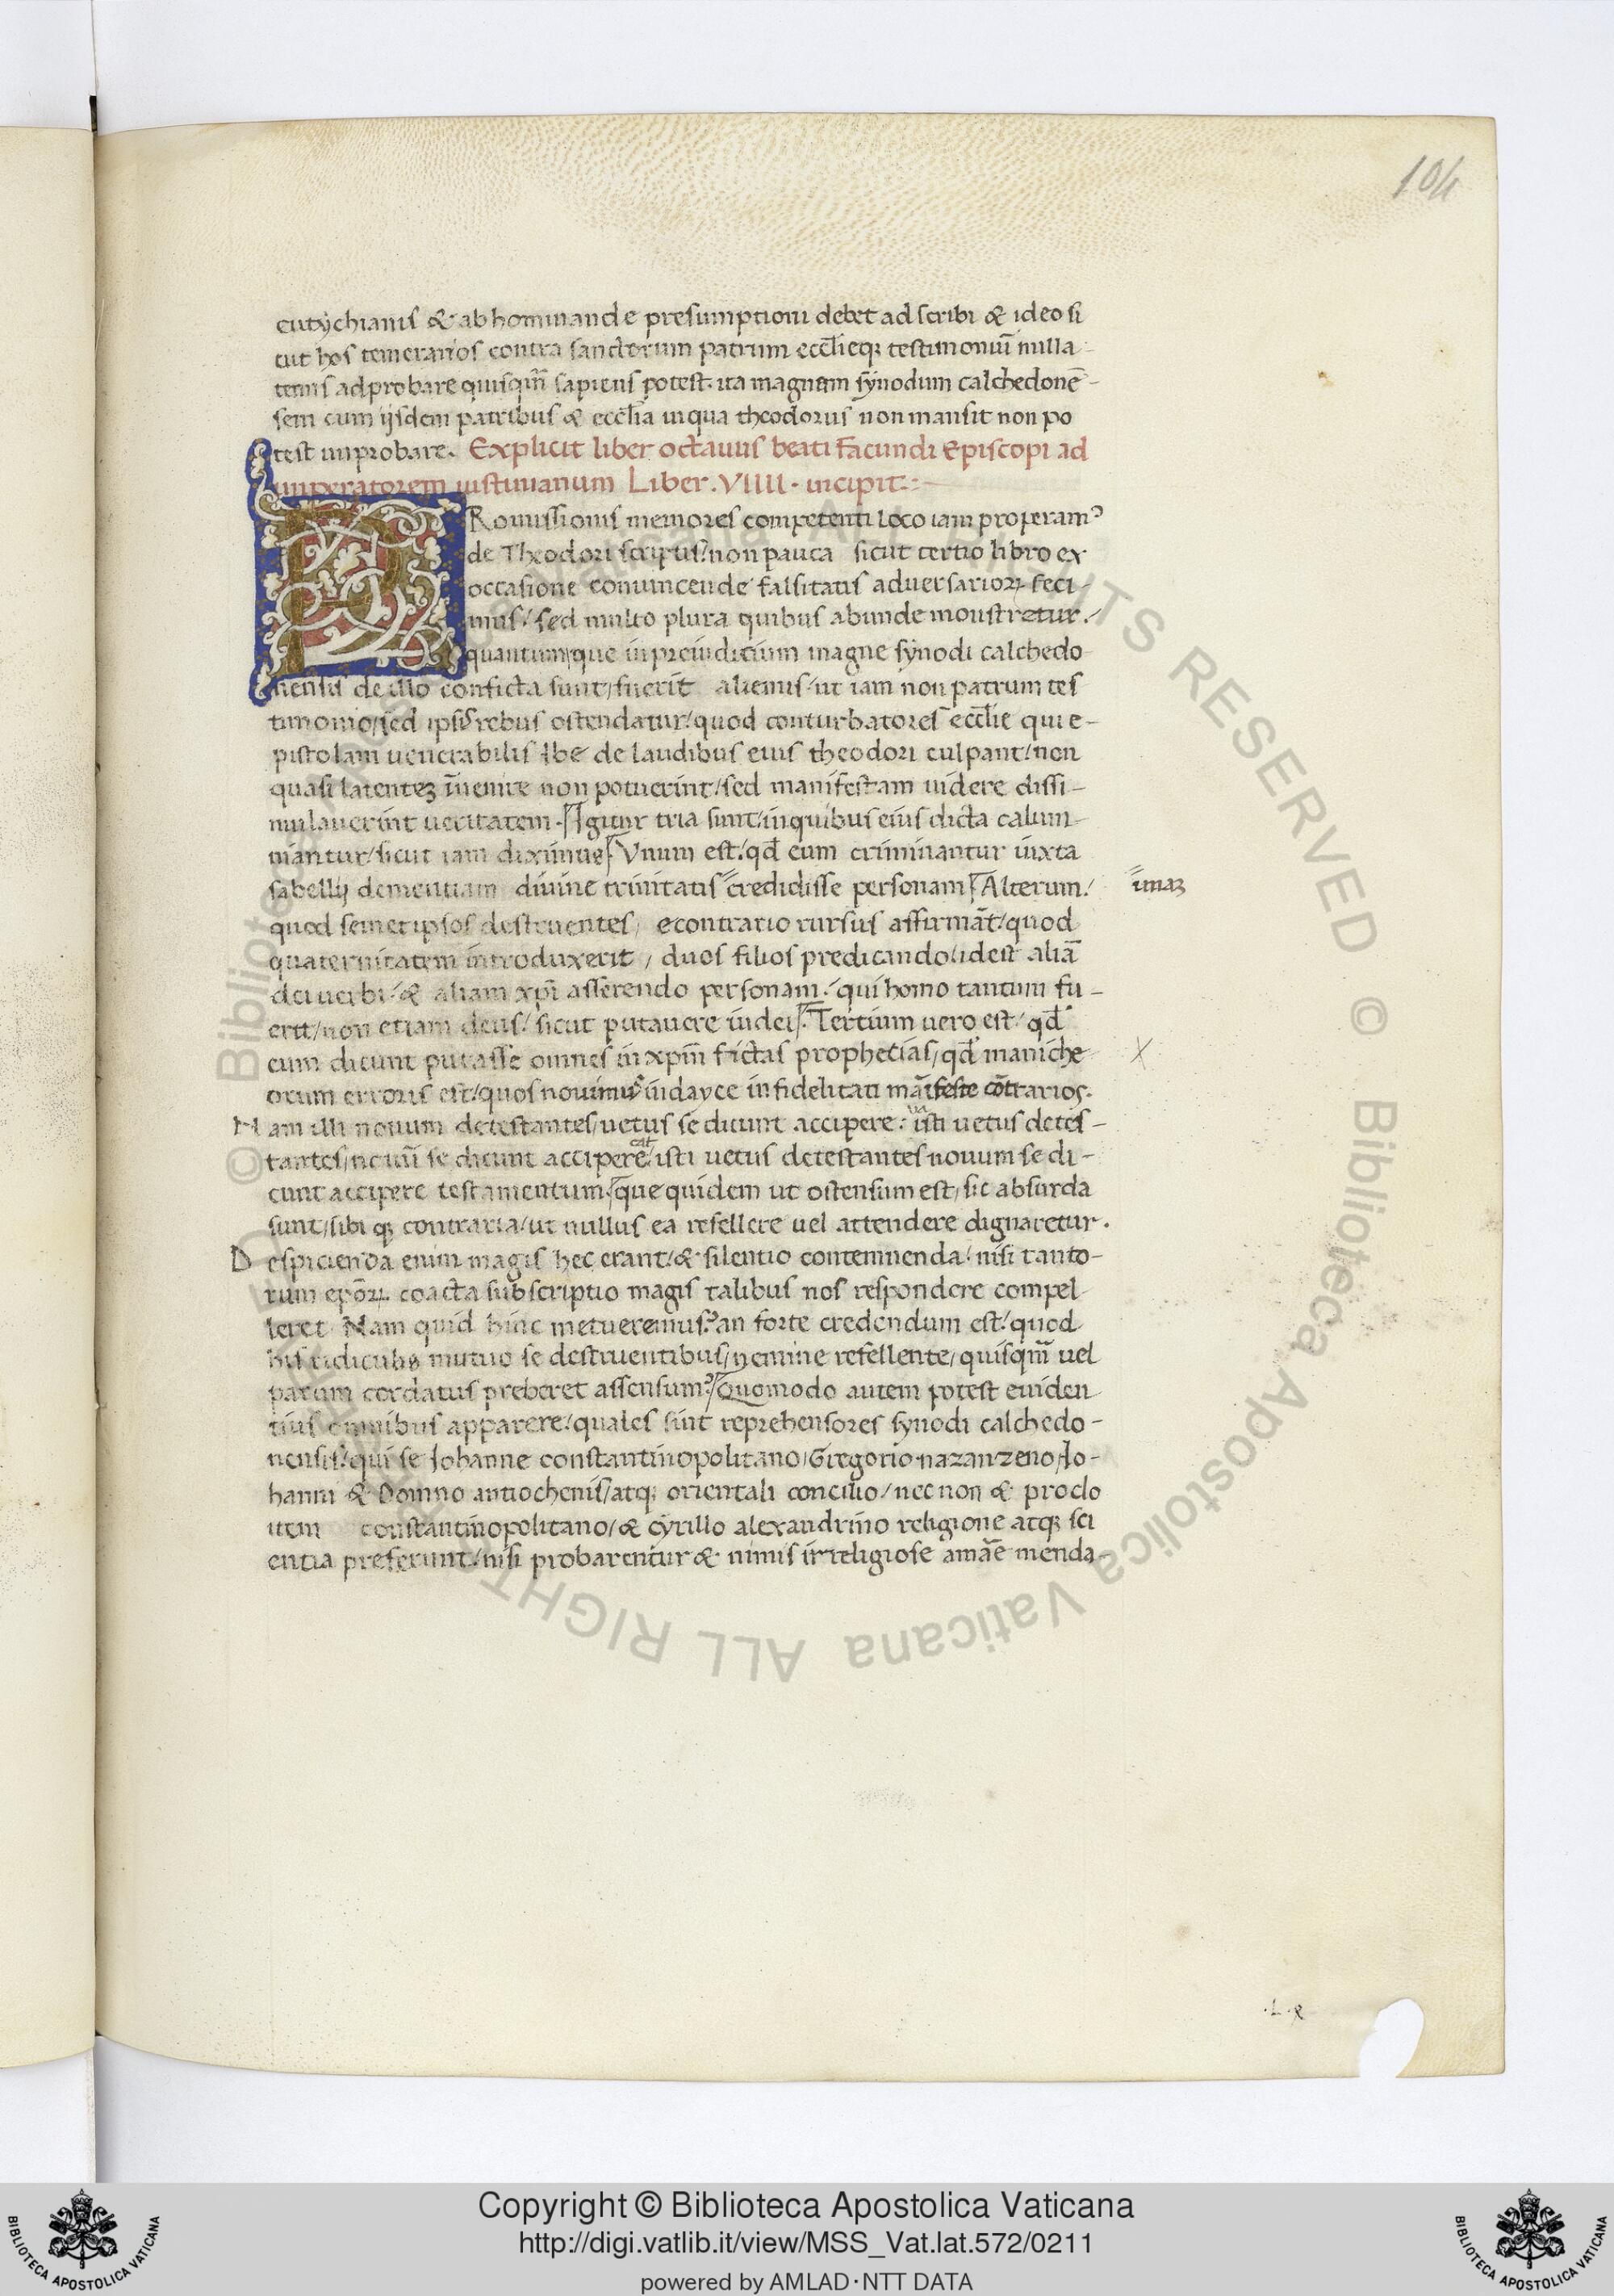 104
eutychianis & abhominande presumptioni debet adscribi & ideo si
cut hos temerarios contra sanctorum patrum eccl̄ieqꝫ testimoniū nulla-
tenus adprobare quisqm̄ sapiens potest. ita magnam synodum calchedonē-
sem cum ijsdem patribus & eccl̄ia inqua theodorus non mansit non po
test improbare. Explicit liber octavus beati Facundi Episcopi ad
imperatorem iustinianum Liber. VIIII. incipit:
PRomissionis memores competenti loco iam properam᾿
de Theodori scriptis/non pauca sicut tertio libro ex
occasione convincende falsitatis adversarioꝝ feci-
mus/ sed multo plura quibus abunde monstretur/
quantumque inpreiudicium magne synodi calchedo
nensis de illo conficta sunt/fuerit alienus/ut iam non patrum tes
timonio/sed ipsis rebus ostendatur/quod conturbatores eccl̄ie qui e-
pistolam venerabilis Ibe de laudibus eius theodori culpant/non
quasi latentem īvenire non potuerint/sed manifestam videre dissi-
mulaverint veritatem. Igitur tria sunt/inquibus eius dicta calum-
niantur/sicut iam diximus. Vnum est/qđ eum criminantur iuxta
sabellij dementiam divine trinitatis credidisse personam Alterum/
unaꝫ
quod semetipsos destruentes, econtrario rursus affirmāt/quod
quaternitatem introduxerit, duos filios predicando/idest aliā
dei verbi/& aliam xp̄i asserendo personam/qui homo tantum fu-
erit/non etiam deus/ sicut putavere iudei. Tertium vero est/qđ
eum dicunt putasse omnes inxpm̄ fictas prophetias/qđ maniche
X
orum erroris est/quos novimus iudayce infidelitati māifeste cōtrarios.
Nam illi novum detestantes/vetus se dicunt accipere: isti vetus detes-
tantes/novū se dicunt accipere isti vetus detestantes novum se di-
cunt accipere testamentum. que quidem ut ostensum est, sic absurda
sunt/sibi qꝫ contraria/ut nullus ea refellere vel attendere dignaretur.
Despicienda enim magis hec erant/& silentio contemnenda/nisi tanto-
rum ep̄oꝝ coacta subscriptio magis talibus nos respondere compel
leret Nam quid hinc metueremus? an forte credendum est/quod
his ridiculis mutuo se destruentibus/nemine refellente/quisqm̄ vel
parum cordatus preberet assensum? Quomodo autem potest eviden
tius omnibus apparere/quales sint reprehensores synodi calchedo-
nensis/qui se Iohanne constantinopolitano/Gregorio nazanzeno/Io-
hanni & Domno antiochenis/atqꝫ orientali concilio/nec non & proclo
item constantinopolitano/& cyrillo alexandrino religione atqꝫ sci
entia preferunt/nisi probarentur & nimis irreligiose amāe menda-
Copyright © Biblioteca Apostolica Vaticana
http://digi.vatlib.it/view/MSS_Vat.lat.572/0211
powered by AMLAD·NTT DATA
BIBLIOTECA APOSTOLICA VATICANA
BIBLIOTECA APOSTOLICA VATICANA
© Biblioteca Apostolica Vaticana ALL RIGHTS RESERVED